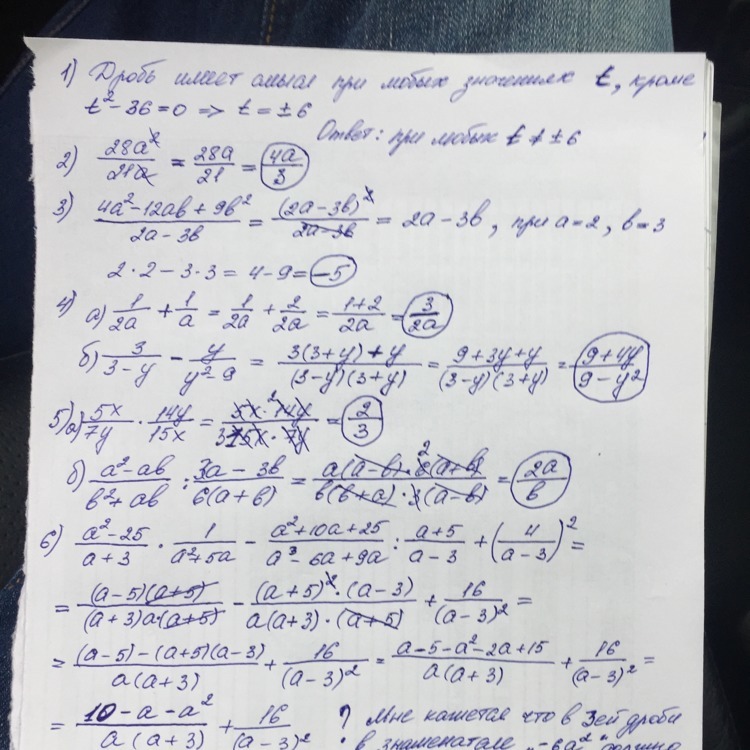 1) Дробь имеет смысл при любых значениях t, кроме
t² - 36 = 0 => t = ± 6
Ответ: при любых t ≠ ± 6
2) 28a²/21a = 28a/21 = 4a/3
3) (4a² - 12ab + 9b²)/(2a - 3b) = (2a - 3b)²/(2a - 3b) = 2a - 3b, при a = 2, b = 3
2·2 - 3·3 = 4 - 9 = -5
4) а) 1/2a + 1/a = 1/2a + 2/2a = (1+2)/2a = 3/2a
б) 3/(3-y) - y/(y²-9) = (3(3+y)+y)/((3-y)(3+y)) = (9+3y+y)/((3-y)(3+y)) = (9+4y)/(9-y²)
5) а) 5x/7y · 14y/15x = (5x · 2 14y)/(3 15x · 7y) = 2/3
б) (a² - ab)/(b² + ab) : (3a - 3b)/(6(a+b)) = (a(a-b) · 2 6(a+b))/(b(b+a) · 3(a-b)) = 2a/b
6) (a² - 25)/(a+3) · 1/(a²+5a) - (a²+10a+25)/(a³ - 6a + 9a) : (a+5)/(a-3) + (4/(a-3))² =
= ((a-5)(a+5))/((a+3)a(a+5)) - ((a+5)²·(a-3))/(a(a+3)·(a+5)) + 16/(a-3)² =
= ((a-5)-(a+5)(a-3))/(a(a+3)) + 16/(a-3)² = (a-5-a²-2a+15)/(a(a+3)) + 16/(a-3)² =
= (10-a-a²)/(a(a+3)) + 16/(a-3)² ? Мне кажется что в 3ей дроби
в знаменателе "-6a²"